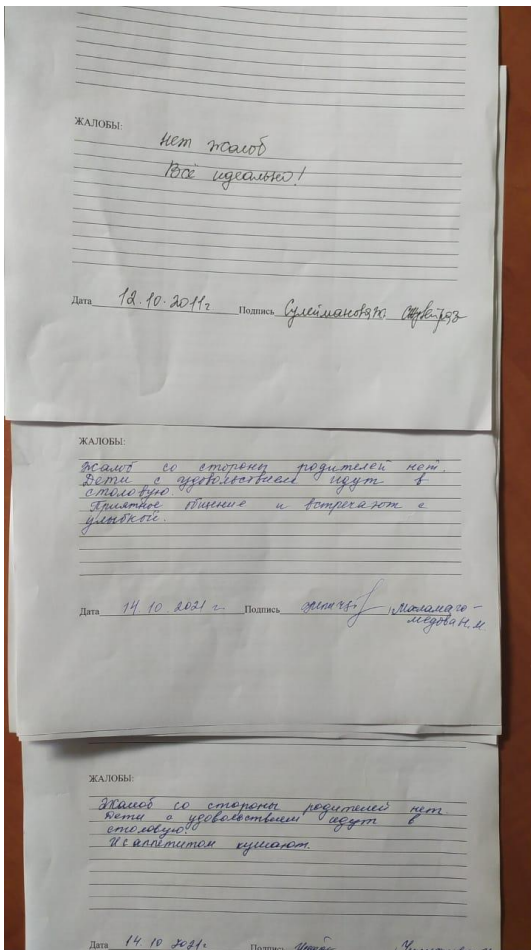 ЖАЛОБЫ:
нет жалоб
Всё идеально!
Дата 12.10.2011г Подпись Сулейманова
ЖАЛОБЫ:
Жалоб со стороны родителей нет.
Дети с удовольствием идут в
столовую
Приятное общение и встречают с
улыбкой.
Дата 14 10 2021 г. Подпись Маламаго-
медова Н.М
ЖАЛОБЫ:
Жалоб со стороны родителей нет
Дети с удовольствием идут в
столовую.
И с аппетитом кушают.
Дата 14.10 2021г. Подпись